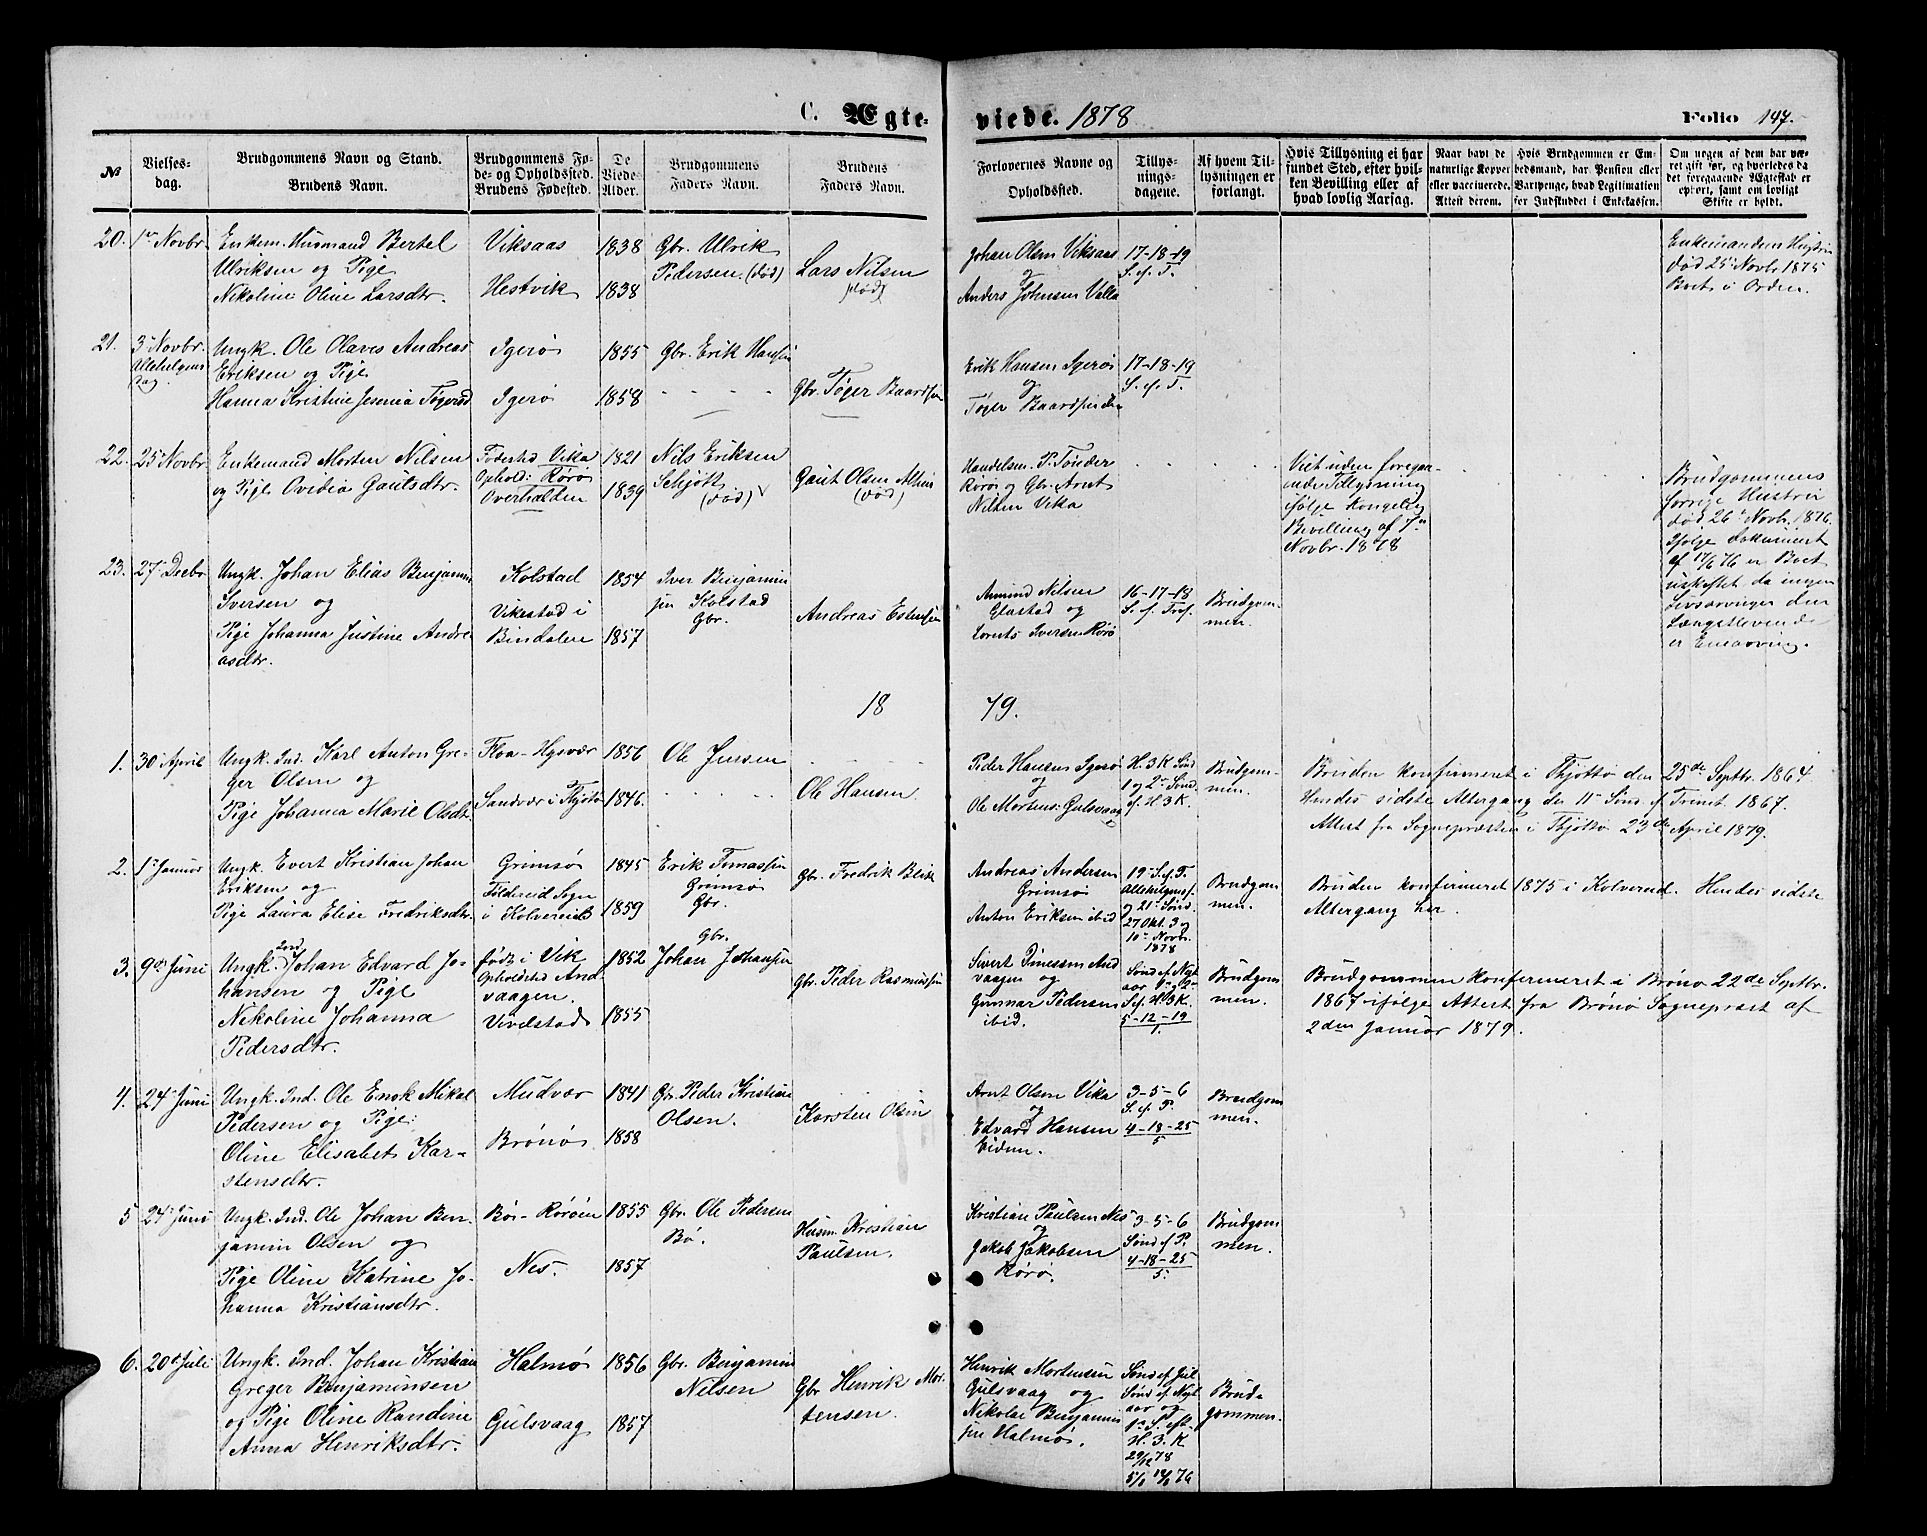 C. Ægte-
viede. 1878
Folio 147.
№
Vielses-
dag.
Brudgommens Navn og Stand.
Brudens Navn.
Brudgommens Fø-
de- og Opholdssted.
Brudens Fødested.
De
Viedes
Alder.
Brudgommens
Faders Navn.
Brudens
Faders Navn.
Forlovernes Navne og
Opholdssted.
Tillys-
nings-
dagene.
Af hvem Til-
lysningen er
forlangt.
Hvis Tillysning ei har
fundet Sted, efter hvil-
ken Bevilling eller af
hvad lovlig Aarsag.
Naar havt de
naturlige Kopper
eller vaccinerede.
Attest derom.
Hvis Brudgommen er Em-
bedsmand, har Pension eller
Vartpenge, hvad Legitimation
for Indskuddet i Enkekassen.
Om nogen af dem har væ-
ret gift før, og hvorledes da
det foregaaende Ægteskab er
ophørt, samt om lovligt
Skifte er holdt.
20. 1ste Novbr.
Enkem. Husmand Bertel
Ulriksen og Pige
Nikoline Oline Larsdtr.
Viksaas
Hestvik
1838
1838
Gbr. Ulrik
Pedersen (død)
Lars Nilsen
(død)
Johan Olsen Viksaas
og
Anders Johnsen Valla
17-18-19
S. ef. T.
Enkemandens Hustru
død 25 Novbr 1875
Boet i Orden.
21. 3 Novbr.
Allehelgens
dag.
Ungk. Ole Olaves Andreas
Eriksen og Pige
Hanna Kristine Jesenia Tøgersd
Igerø
Igerø
1855
1858
Gbr. Erik Hansen
Gbr. Tøger Baardsen
Erik Hansen Igerø
og
Tøger Baardsen
17-18-19
S. ef. T.
22. 25 Novbr.
Enkemand Morten Nilsen
og Pige Ovidia Gautsdtr.
Fødested Vika
Ophold: Rørø
Overhalden
1821
1839
Nils Eriksen
Schjøtt
(død)
Gaut Olsen
(død)
Handelsm. P. Tønder
Rørø og Gbr. Arnt
Nilsen Vika
Viet uden foregaa-
ende Tillysning
ifølge Kongelig
Bevilling af 7de
Novbr. 1878
Brudgommens
forrige Hustru
død 26 Novb. 1876.
Ifølge Dokument
er Boet
uskiftet da ingen
Livsarvinger den
Længstlevende
er Enearving.
23. 27 Decbr
Ungk. Johan Elias Benjamin
Iversen og
Pige Johanna Justine Andre-
asdtr.
Kolstad
Vikestad i
Bindalen
1854
1857
Iver Benjamin
sen Kolstad
Gbr.
Andreas Estensen
Amund Nilsen
Glastad og
Lornts Iversen Rørø
16-17-18
S. ef. Tref.
Brudgom-
men.
18 79.
1. 30 April
Ungk. Ind. Karl Anton Gre-
ger Olsen og
Pige Johanna Marie Olsdt.
Floa-Hysvær
Sandvær i Tjøtta
1856
1846.
Ole Jensen
Ole Hansen
Peder Hansen Igerø
og
Ole Mortens: Gulsvaag
H. 3 K Sønd
1 og 2 Sønd.
ef. H. 3 K.
Brudgom-
men.
Bruden konfirmeret i Thjøttø den 25de Septbr. 1864
Hendes sidste Altergang den 11 Sønd. ef Trinit. 1867.
Attest fra Sognepræsten i Thjøttø 23de April 1879.
2. 1ste Januar
Ungk. Evert Kristian Johan
Eriksen og
Pige Laura Elise Fredriksdtr.
Grimsø
Foldereid Sogn
i Kolvereid
1845
1859
Erik Tomassen
Grimsø
Gbr.
Gbr. Fredrik Blik
Andreas Andersen
Grimsø
Anton Eriksen ibid
19 S. ef. T.
Allehelgensf.
og 21 Sønd.
27 Okt. 3 og
10 Novbr.
1878
Brudgom
men.
Bruden konfirmeret 1875 i Kolvereid. Hendes sidste
Altergang her.
3. 9de Juni
Ungk. Ind. Johan Edvard Jo-
hansen og Pige
Nikoline Johanna
Pedersdtr.
født i Vik
Opholdsted And
vaagen.
Vivelstad
1852
1855
Gbr.
Johan Johansen
Gbr. Peder Rasmussen
Sivert Dinessen And
vaagen og
Gunnar Pedersen
ibid.
Sønd ef. Nyt
aar 1ste og 2den
S. ef. H. 3 K.
5-12-19
1.
Brudgom
men.
Brudgommen konfirmeret i Brønø 22de Septbr.
1867 ifølge Attest fra Brønø Sogneprest af
2den Januar 1879.
4. 24 Juni
Ungk. Ind. Ole Enok Mikal
Pedersen og Pige:
Oline Elisabet Kar-
stensdtr.
Mudvær
Brønø
1841
1858
Gbr. Peder Kristian
Olsen.
Karsten Olsen
Arnt Olsen Vika
og
Edvard Hansen
Eidem.
3-5-6
S. ef. P.
4-18-25
5
Brudgom
men.
5 24 Juni
Ungk. Ind. Ole Johan Ben-
jamin Olsen og
Pige Oline Katrine Jo-
hanna Kristiansdtr.
Bø-Rørøen
Nes.
1855
1857
Gbr. Ole Pedersen
Bø.
Husm. Kristian
Paulsen.
Kristian Paulsen Nes
og
Jakob Jakobsen
Rørø.
3-5-6
Sønd ef P.
4-18-25
5
Brudgom
men.
6. 20 Juli
Ungk. Ind. Johan Kristian
Greger Benjaminsen
og Pige Oline Randine
Anna Henriksdtr.
Halmø
Gulsvaag
1856
1857
Gbr. Benjamin
Nilsen
Gbr Henrik Mor-
tensen.
Henrik Mortensen
Gulsvaag og
Nikolai Benjamin
sen Halmø.
Sønd ef Jul
Sønd ef. Nyt
aar og
1ste S. eft.
H. 3. K
29/12 78
5/1 12/1 79
Brud-
gommen.